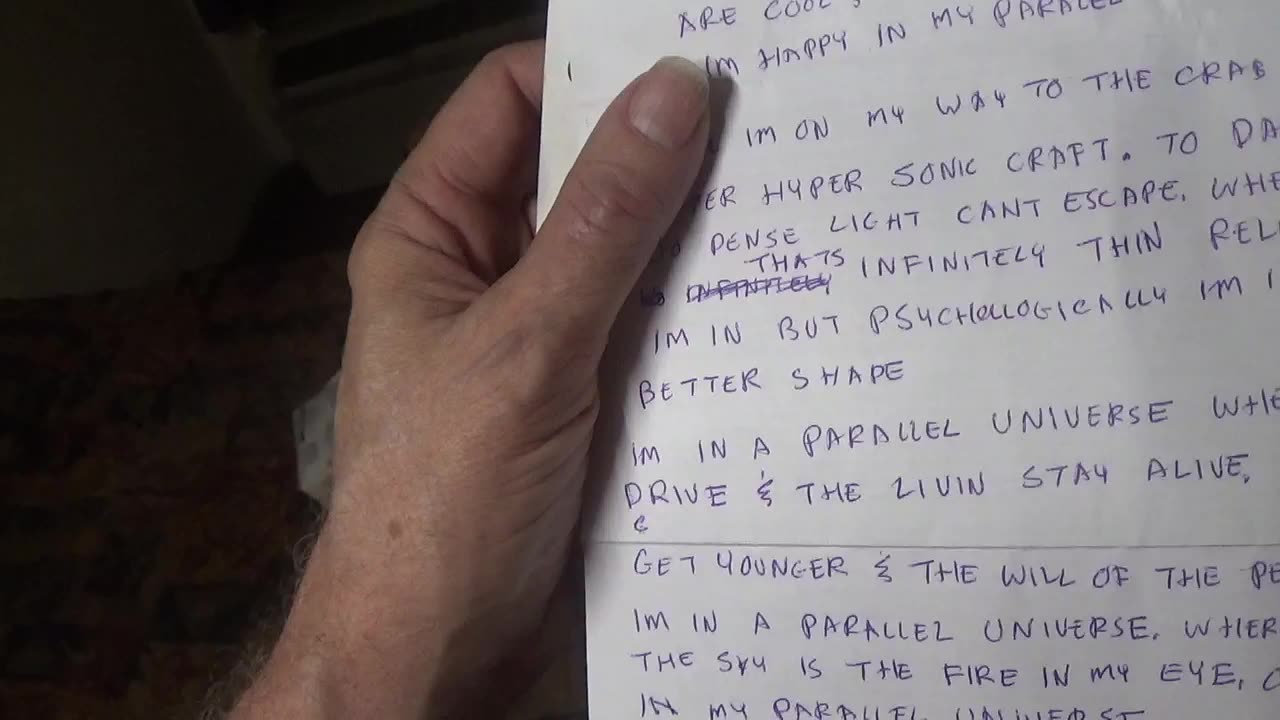 ARE COOL
IM HAPPY IN MY PARALEL
IM ON MY WAY TO THE CRAB
ER HYPER SONIC CRAFT. TO DA
DENSE LIGHT CANT ESCAPE. WHE
THATS
INFINITELY INFINITELY THIN REL
IM IN BUT PSYCHOLLOGICALLY IM I
BETTER SHAPE
IM IN A PARALLEL UNIVERSE WHE
DRIVE & THE LIVIN STAY ALIVE,
GET YOUNGER & THE WILL OF THE PE
IM IN A PARALLEL UNIVERSE. WHER
THE SKY IS THE FIRE IN MY EYE,
IN MY PARALLEL UNIVERST